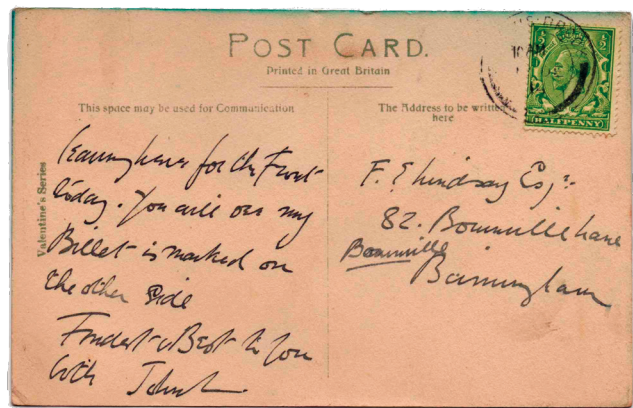 POST CARD.
Printed in Great Britain
This space may be used for Communication
The Address to be written
here
Valentine's Series
Leaving here for the Front
today. You will see my
Billet is marked on
the other side
Fondest & Best to you
both John
F. E. Lindsay Esq:-
82. Bournville Lane
Bournville
Birmingham
10 AM
½
½
HALFPENNY